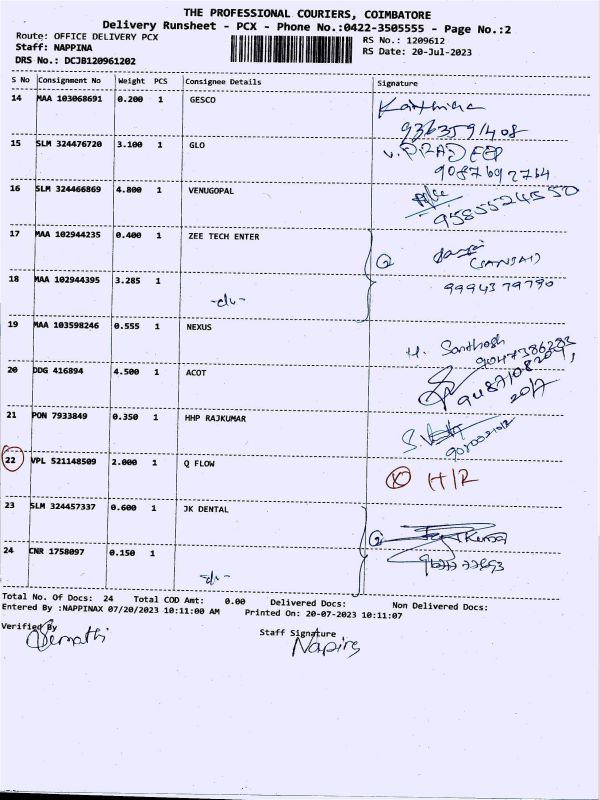 THE PROFESSIONAL COURIERS, COIMBATORE
Delivery Runsheet - PCX - Phone No.:0422-3505555 - Page No.:2
Route: OFFICE DELIVERY PCX RS No.: 1209612
Staff: NAPPINA RS Date: 20-Jul-2023
DRS No.: DCJB120961202
S No Consignment No Weight PCS Consignee Details Signature
14 MAA 103068691 0.200 1 GESCO
9363591408
15 SLM 324476720 3.100 1 GLO V. PRADEEP
9087692764
16 SLM 324466869 4.800 1 VENUGOPAL
9585524550
17 MAA 102944235 0.400 1 ZEE TECH ENTER 2
(SANJAI)
18 MAA 102944395 3.285 1 9994379790
-do-
19 MAA 103598246 0.555 1 NEXUS H. Santhosh
20 DDG 416894 4.500 1 ACOT
20/7
21 PON 7933849 0.350 1 HHP RAJKUMAR
22 VPL 521148509 2.000 1 Q FLOW H/R
23 SLM 324457337 0.600 1 JK DENTAL
2
24 CNR 1758097 0.150 1
-do-
Total No. Of Docs: 24 Total COD Amt: 0.00 Delivered Docs: Non Delivered Docs:
Entered By :NAPPINAX 07/20/2023 10:11:00 AM Printed On: 20-07-2023 10:11:07
Verified By Staff Signature